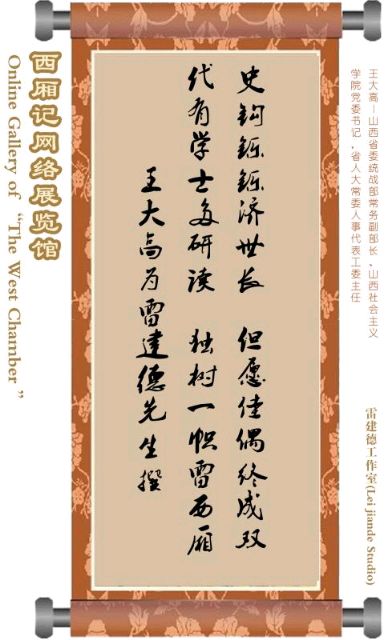 王大高—山西省委统战部常务副部长、山西社会主义
学院党委书记，省人大常委人事代表工委主任
雷建德工作室(Lei jiande Studio)
史钩铄铄济世长 但愿佳偶终成双
代有学士多研读 独树一帜雷西厢
王大高为雷建德先生撰
西厢记网络展览馆
Online Gallery of “The West Chamber ”